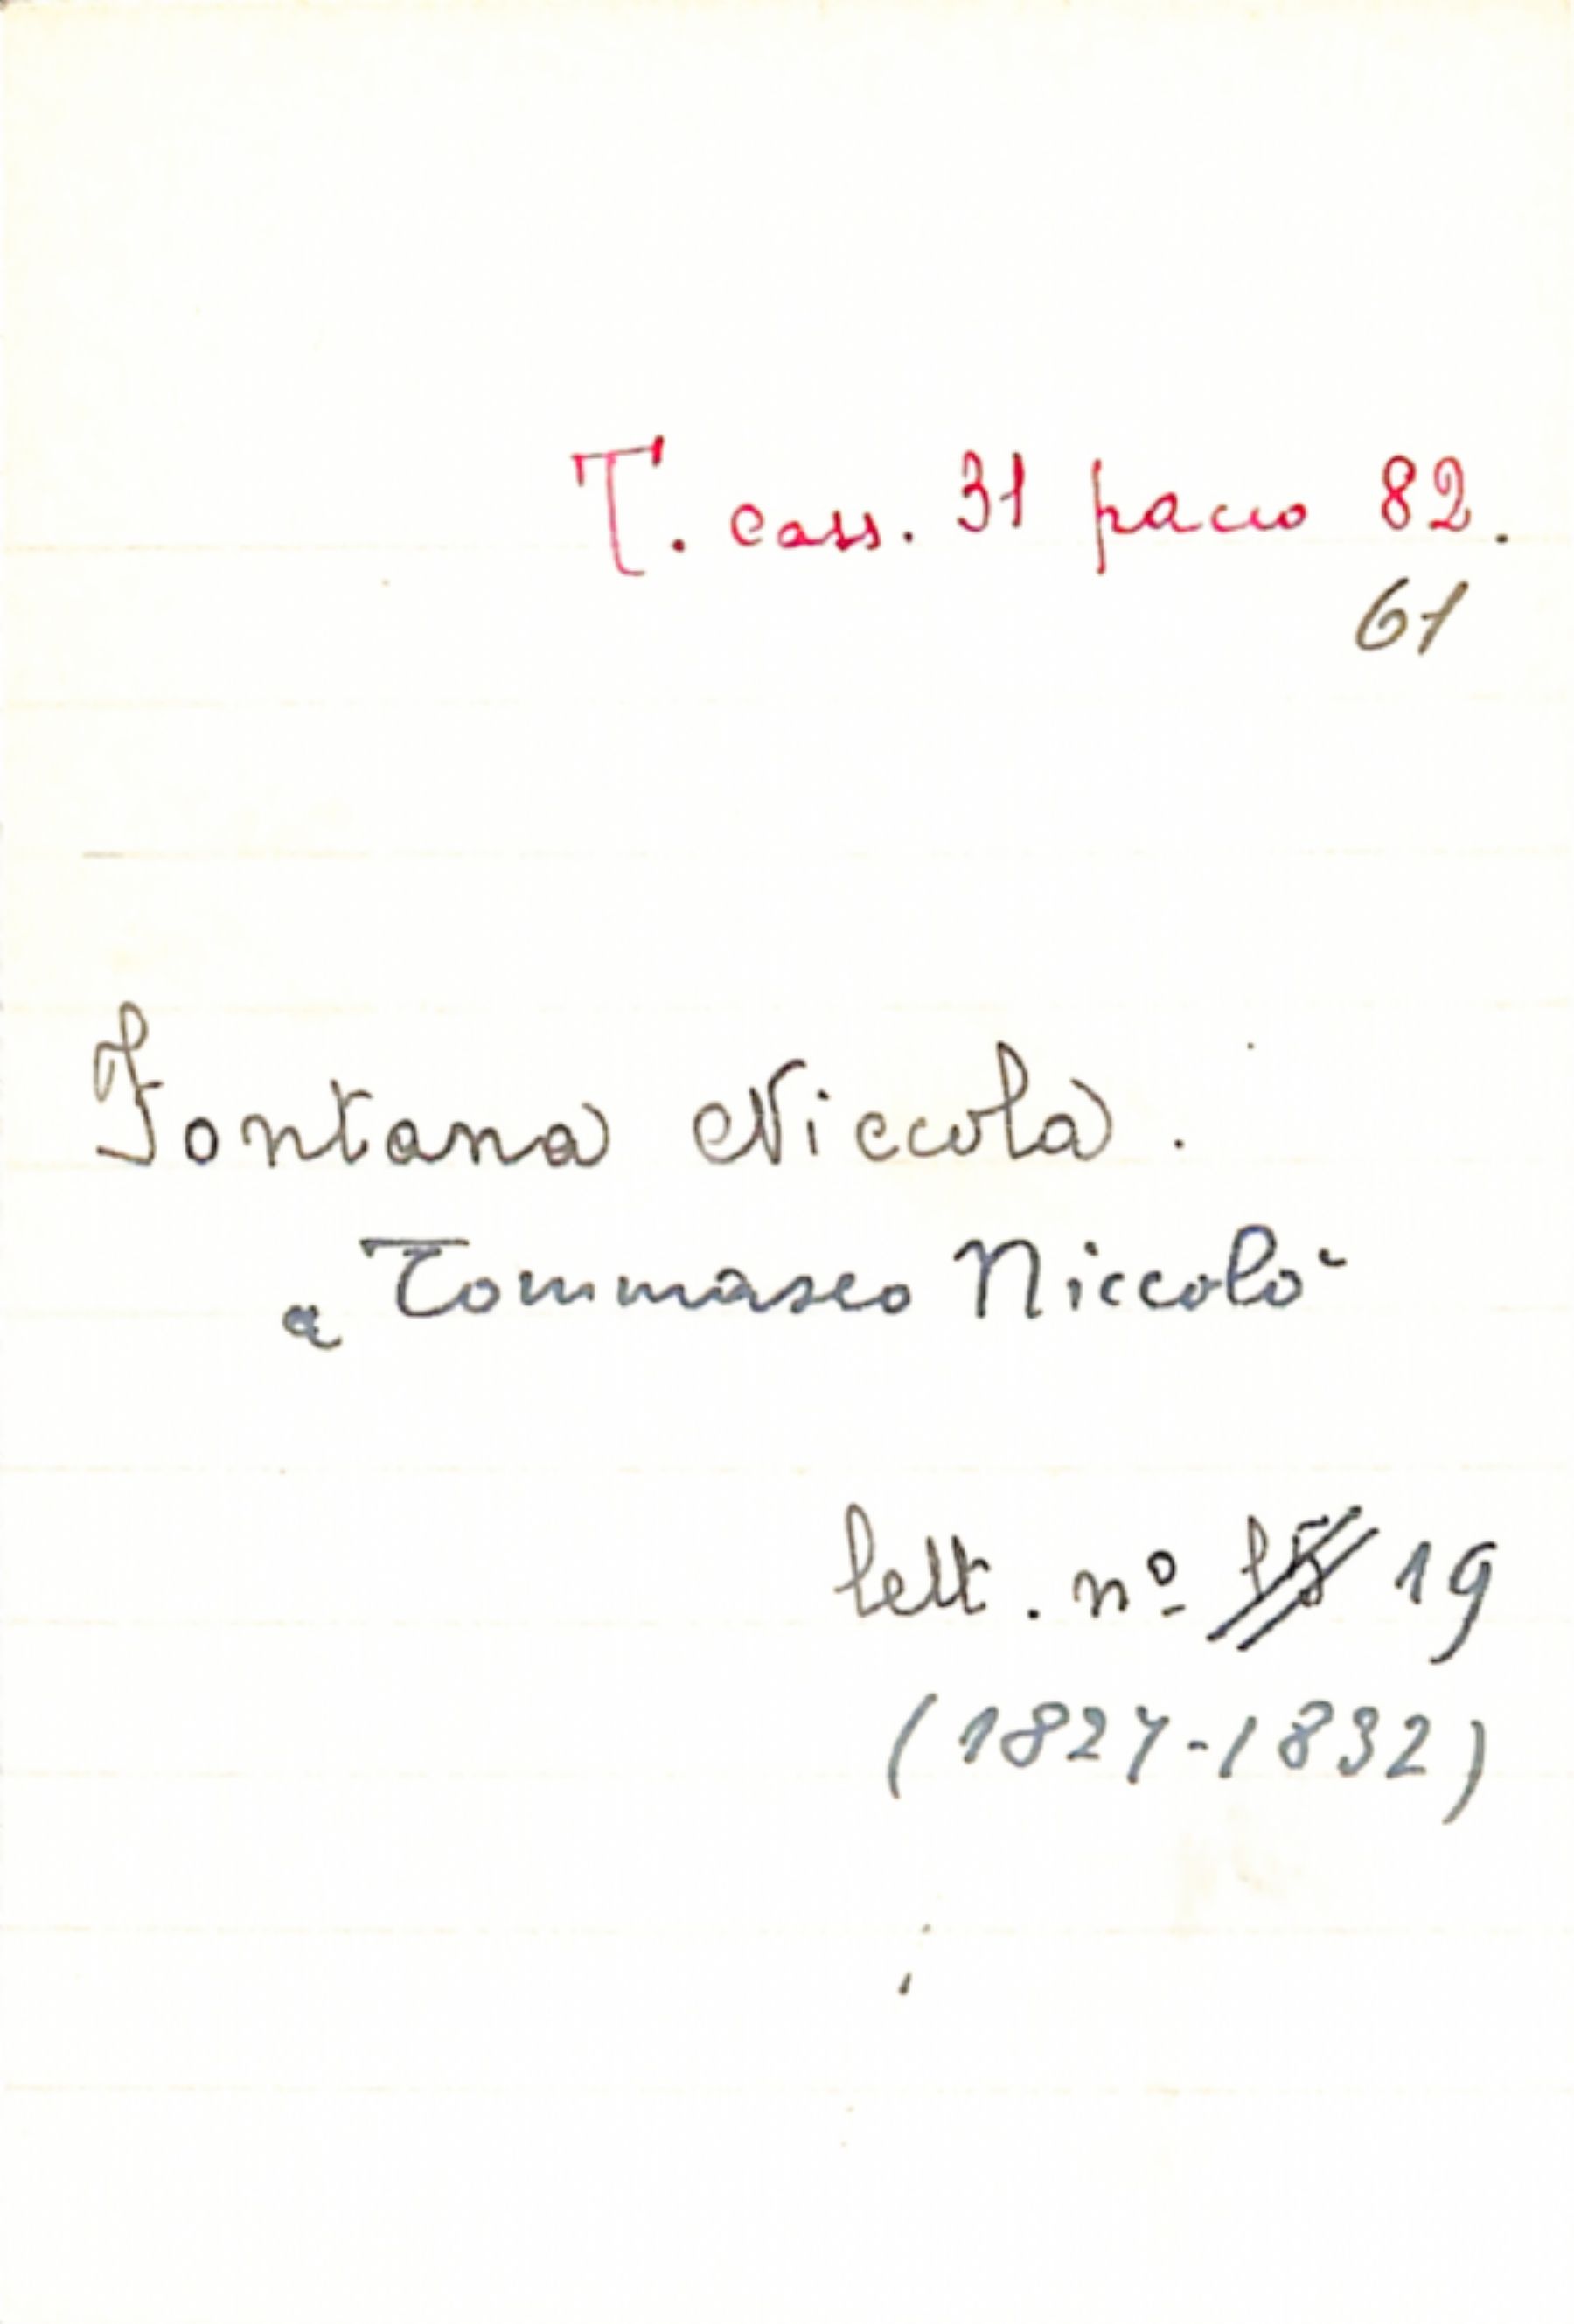 T. cass. 31 pacco 82.
61
Fontana Niccola.
a Tommaseo Niccolò
lett. nº 15 19
(1827-1832)